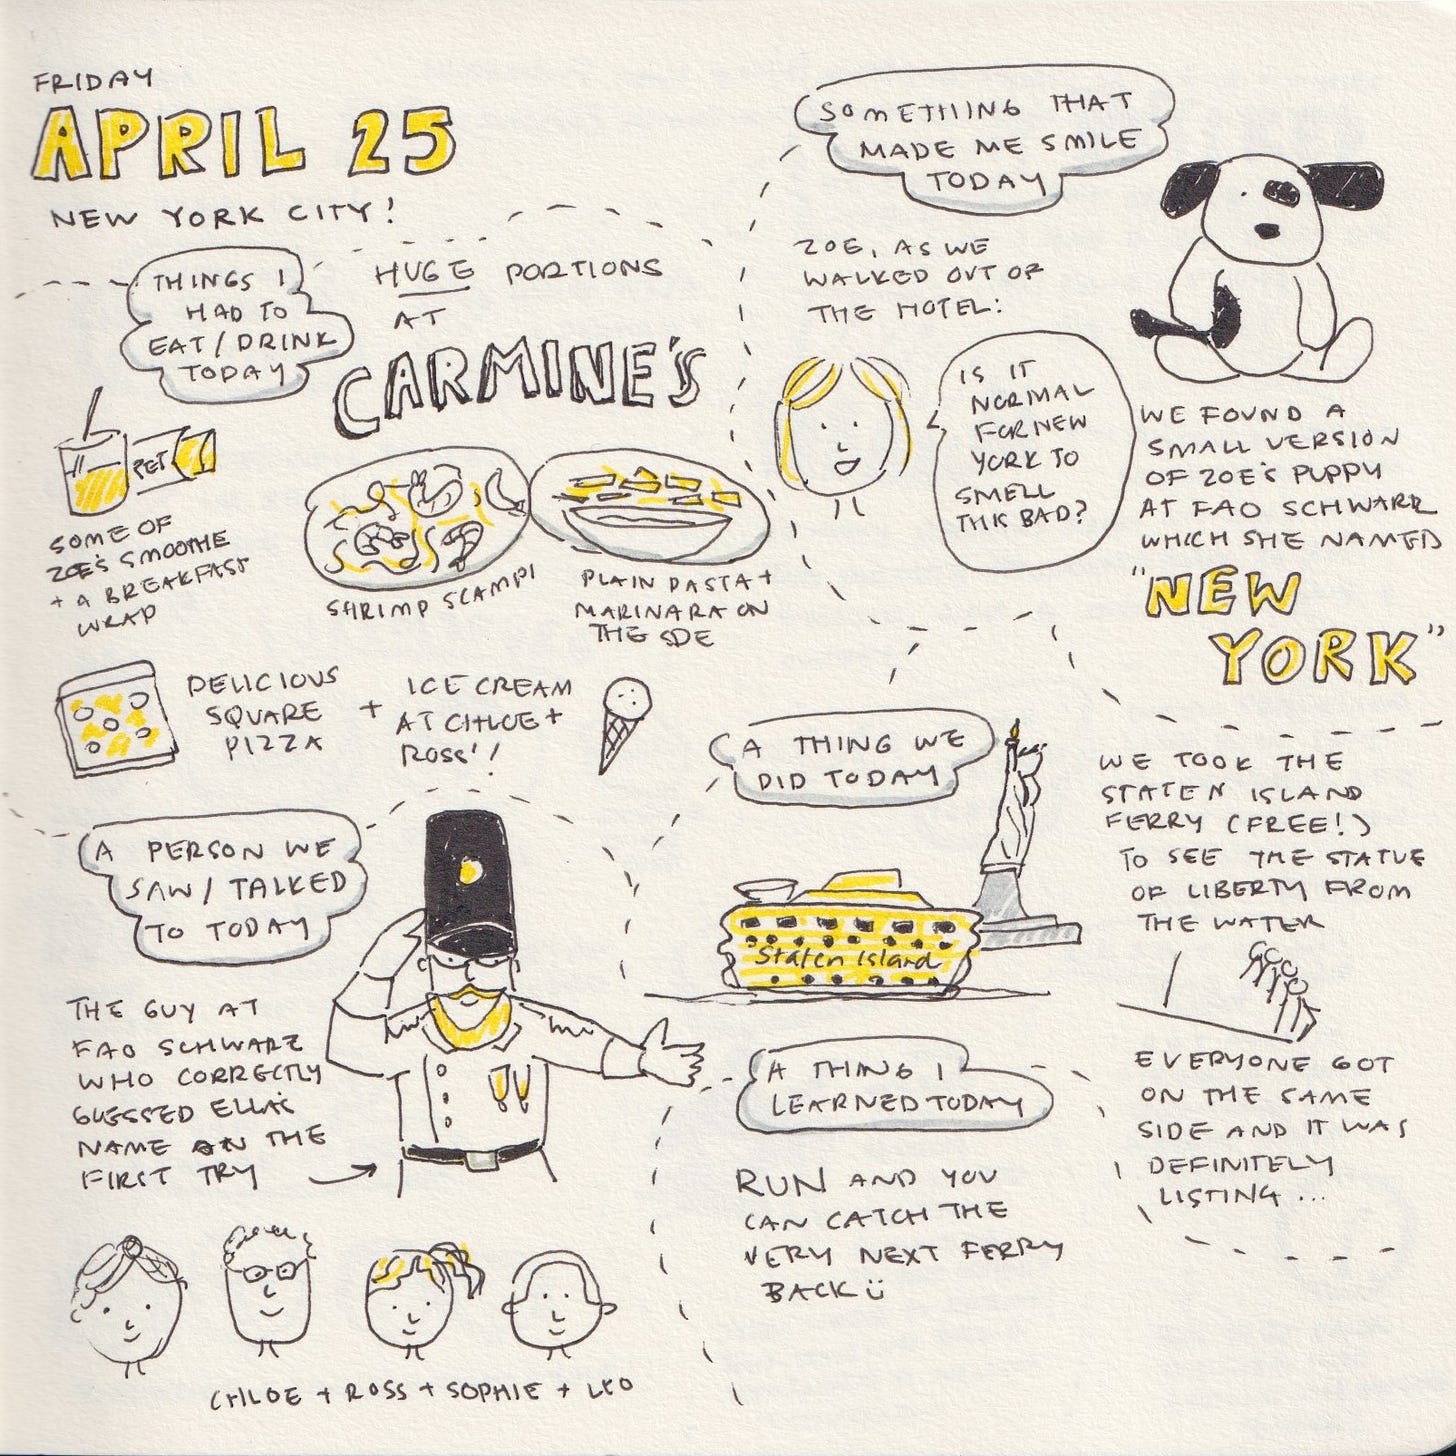 FRIDAY
APRIL 25
NEW YORK CITY!
THINGS I
HAD TO
EAT/DRINK
TODAY
HUGE PORTIONS
AT
CARMINE'S
PRET
SOME OF
ZOE'S SMOOTHIE
+ A BREAKFAST
WRAP
SHRIMP SCAMPI
PLAIN PASTA +
MARINARA ON
THE SIDE
DELICIOUS
SQUARE
PIZZA
+
ICE CREAM
AT CHLOE +
ROSS'!
A PERSON WE
SAW/TALKED
TO TODAY
THE GUY AT
FAO SCHWARZ
WHO CORRECTLY
GUESSED ELLA'S
NAME ON THE
FIRST TRY
CHLOE + ROSS + SOPHIE + LEO
SOMETHING THAT
MADE ME SMILE
TODAY
ZOE, AS WE
WALKED OUT OF
THE HOTEL:
IS IT
NORMAL
FOR NEW
YORK TO
SMELL
THIS BAD?
WE FOUND A
SMALL VERSION
OF ZOE'S PUPPY
AT FAO SCHWARZ
WHICH SHE NAMED
"NEW
YORK"
A THING WE
DID TODAY
Staten Island
WE TOOK THE
STATEN ISLAND
FERRY (FREE!)
TO SEE THE STATUE
OF LIBERTY FROM
THE WATER
EVERYONE GOT
ON THE SAME
SIDE AND IT WAS
DEFINITELY
LISTING...
A THING I
LEARNED TODAY
RUN AND YOU
CAN CATCH THE
VERY NEXT FERRY
BACK